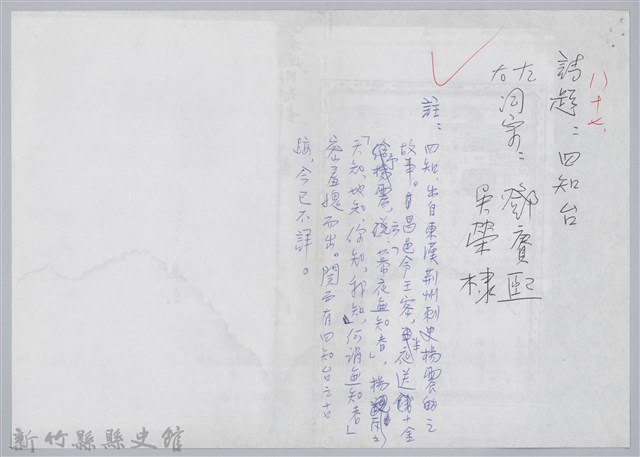 八十七
詩題：四知台
左右詞宗：鄧賡熙
吳榮棣
註：四知，出自東漢荊州刺史楊震的之
故事。有昌邑令王密，半夜送十金
給楊震，說：「暮夜無知者」，楊震云
「天知，地知，你知，我知，何謂無知者」
密羞愧而出。關西有四知台之古
蹟，今已不詳。
新竹縣縣史館